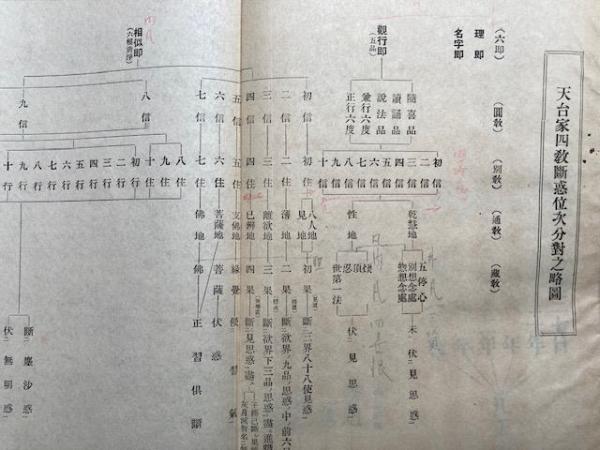 天台家四敎斷惑位次分對之略圖
(六卽) (圓敎) (別敎) (通敎) (藏敎)
理卽
名字卽
觀行卽
(五品)
隨喜品
讀誦品
說法品
兼行六度
正行六度
初信
二信
三信
四信
五信
六信
七信
八信
九信
十信
乾慧地
性地
五停心
別想念處
惣想念處
未伏見思惑
煖
頂
忍
世第一法
伏見思惑
相似卽
(六根淸淨)
初信 初住 八人地
見地 初果 斷三界八十八使見惑
二信 二住 薄地 二果 斷欲界九品思惑中前六
三信 三住 離欲地 三果 斷欲界下三品思惑盡進
四信 四住 已辨地 四果 斷見思惑盡
五信 五住 支佛地 緣覺 侵習氣
六信 六住 菩薩地 菩薩 伏惑
七信 七住 佛地 佛 正習俱斷
八信
八住
九住
十住
初行
二行
三行
四行
五行
六行
七行
八行
九行
十行
九信
斷塵沙惑
伏無明惑